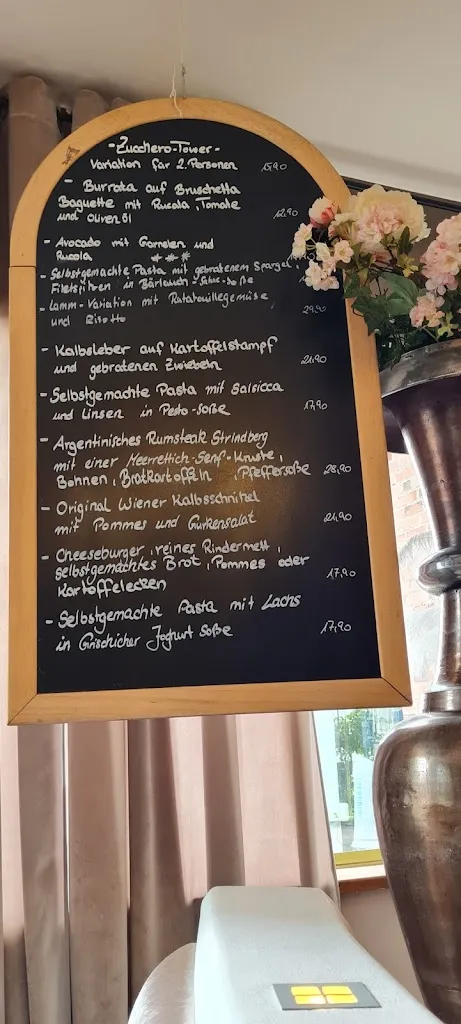 -Zucchero-Tower-
Variation für 2. Personen 15,90
- Burrata auf Bruschetta
Baguette mit Rucola, Tomate
und Olivenöl 12,90
- Avocado mit Garnelen und
Rucola
***
- Selbstgemachte Pasta mit gebratenem Spargel,
Filetspitzen in Bärlauch-
- Lamm-Variation mit Ratatouillegemüse
und Risotto 29,90
- Kalbsleber auf Kartoffelstampf
und gebratenen Zwiebeln 21,90
- Selbstgemachte Pasta mit Salsicca
und Linsen in Pesto-Soße 17,90
- Argentinisches Rumsteak Strindberg
mit einer Meerrettich-Senf-Kruste,
Bohnen, Bratkartoffeln, Pfeffersoße 28,90
- Original Wiener Kalbsschnitzel
mit Pommes und Gurkensalat 24,90
- Cheeseburger, reines Rindermett,
selbstgemachtes Brot, Pommes oder
Kartoffelecken 17,90
- Selbstgemachte Pasta mit Lachs
in Grischicher Joghurt Soße 17,90